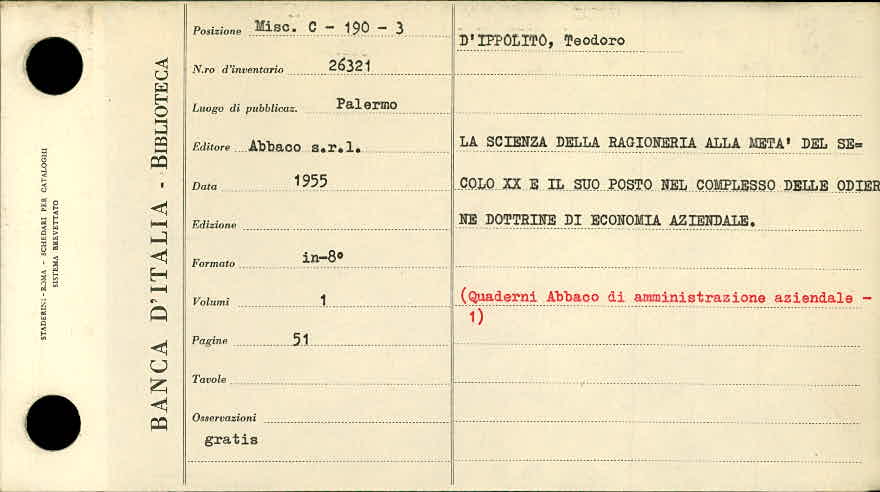 STADERINI - ROMA - SCHEDARI PER CATALOGHI
SISTEMA BREVETTATO
BANCA D'ITALIA - BIBLIOTECA
Posizione Misc. C - 190 - 3
N.ro d'inventario 26321
Luogo di pubblicaz. Palermo
Editore Abbaco s.r.l.
Data 1955
Edizione
Formato in-8°
Volumi 1
Pagine 51
Tavole
Osservazioni
gratis
D'IPPOLITO, Teodoro
LA SCIENZA DELLA RAGIONERIA ALLA META' DEL SE=
COLO XX E IL SUO POSTO NEL COMPLESSO DELLE ODIER
NE DOTTRINE DI ECONOMIA AZIENDALE.
(Quaderni Abbaco di amministrazione aziendale -
1)